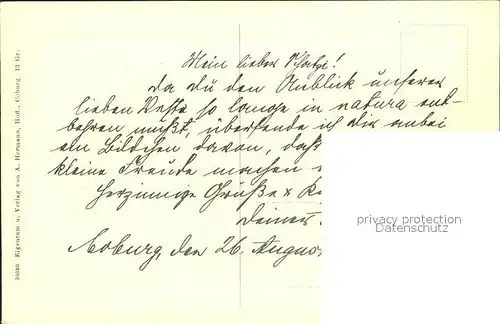 Mein lieber Schatz!
Da du den Anblick unserer
lieben Veste so lange in natura ent-
behren mußt, übersende ich dir anbei
ein Bildchen davon, daß
kleine Freude machen
Herzinnige Grüße &
Deines
Koburg, den 26. Augus
privacy protection
Datenschutz
10340 Eigentum u. Verlag von A. Hermann, Hofl., Coburg 12 Gr.